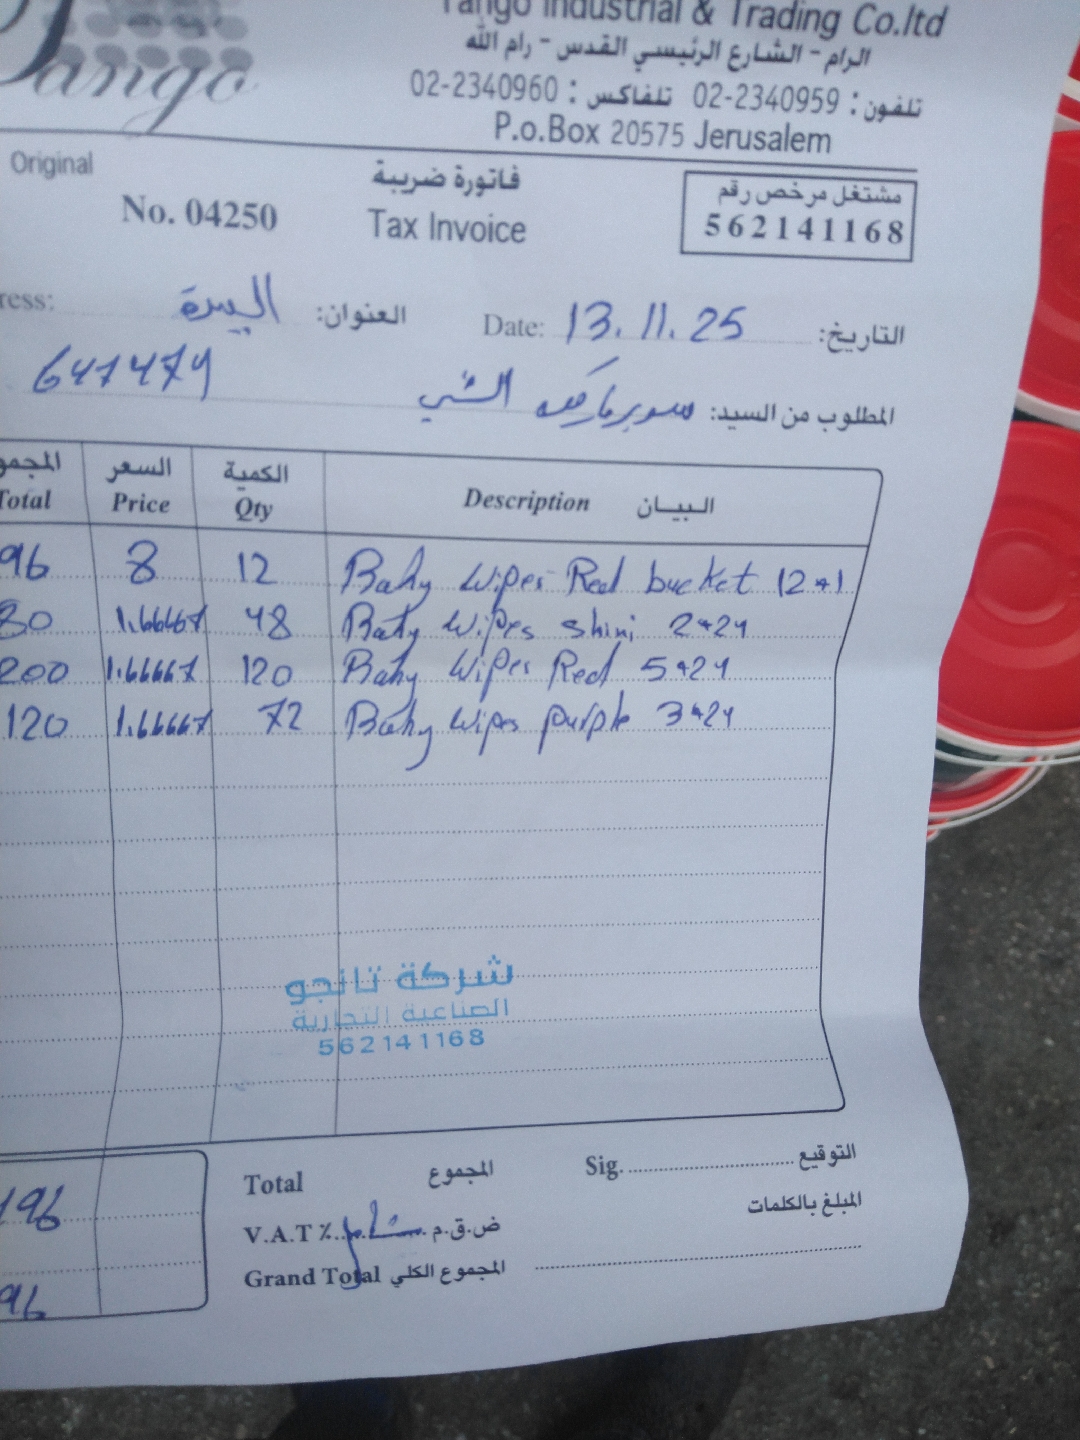 Tango
Tango Industrial & Trading Co.ltd
الرام - الشارع الرئيسي القدس - رام الله
تلفون : 02-2340959 تلفاكس : 02-2340960
P.o.Box 20575 Jerusalem
Original
No. 04250
فاتورة ضريبة
Tax Invoice
مشتغل مرخص رقم
562141168
التاريخ: Date: 13.11.25
العنوان: البيرة
المطلوب من السيد: سوبرماركت
647479
البيـــان Description
الكمية Qty
السعر Price
Total
Baby Wipes Red bucket 12*1 12 8 96
Baby Wipes Shini 2*24 48 1.66667 80
Baby Wipes Red 5*24 120 1.66667 200
Baby Wipes purple 3*24 72 1.66667 120
شركة تانجو
الصناعية التجارية
562141168
Total المجموع
V.A.T ٪ ض.ق.م
Grand Total المجموع الكلي
Sig. التوقيع
المبلغ بالكلمات